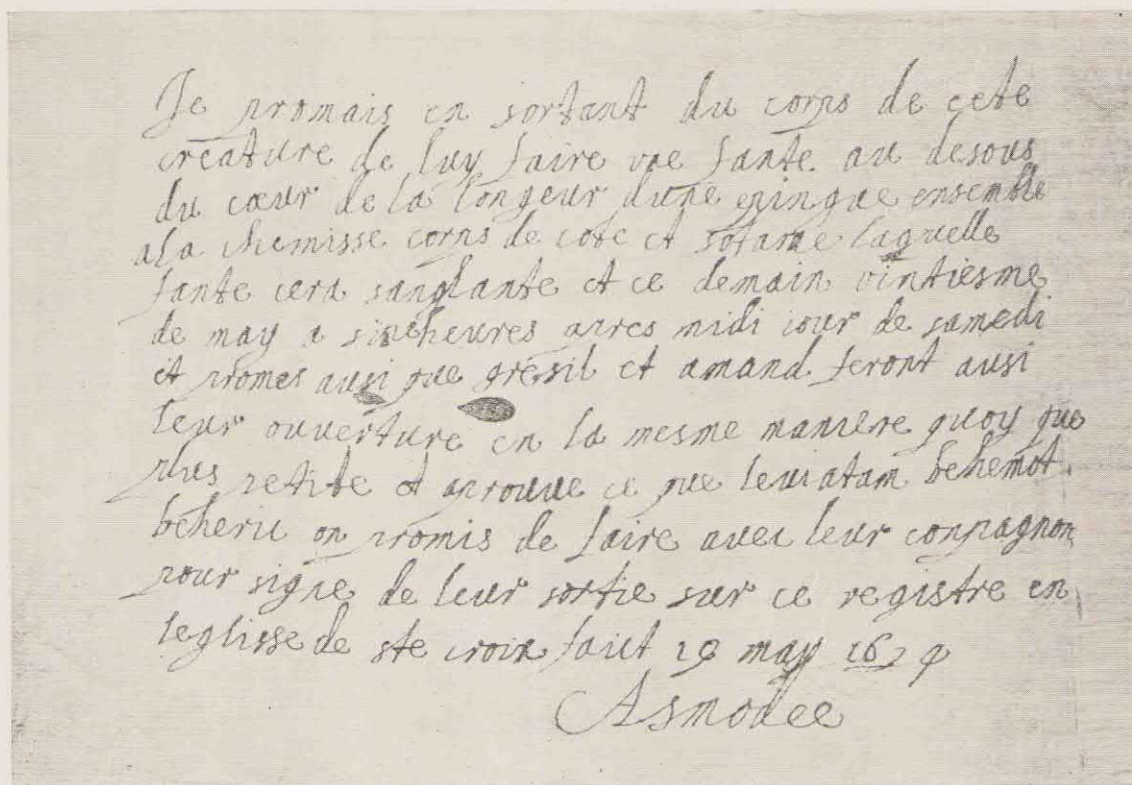 Je promais en sortant du corps de cete
creature de luy faire vne fante au desous
du cœur de la longeur dune epingue ensemble
a la chemisse corps de cote et sotane laquelle
fante cera sanglante et ce demain vintiesme
de may a sinc heures apres midi iour de samedi
et promes ausi que gresil et amand feront ausi
leur ouverture en la mesme maniere quoy que
plus petite et aprouve ce que leuiatam behemot
beherie on promis de faire avec leur conpagnon
pour signe de leur sortie sur ce registre en
leglisse de ste croix faict 19 may 1629
Asmodee